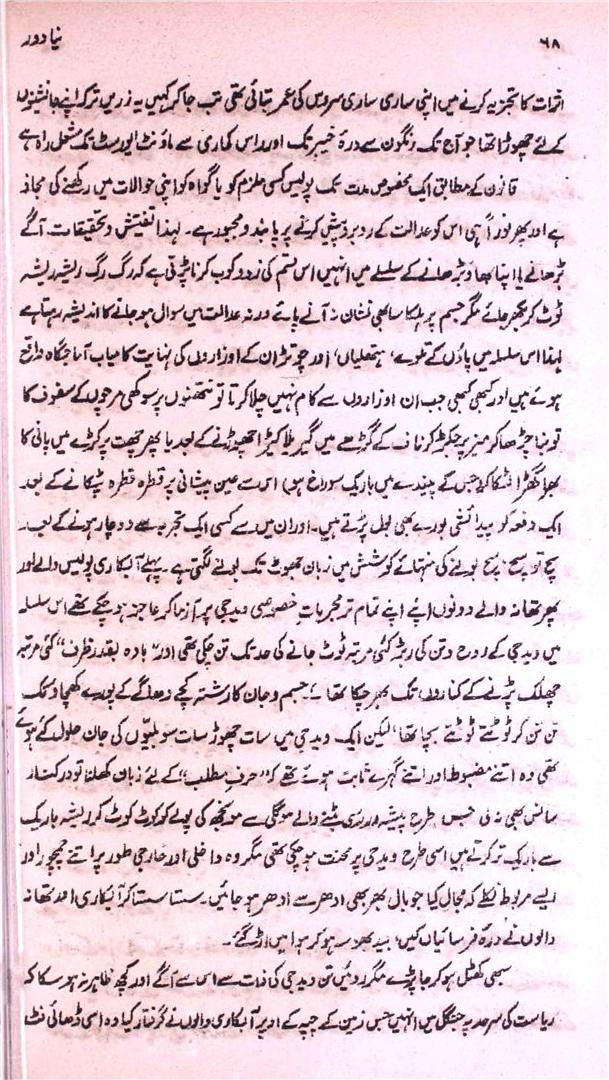 ۶۸
نیا دور
اثرات کا تجزیہ کرنے میں اپنی ساری ساری سروس کی عمر بتائی تھی تب جا کر کہیں یہ زریں ترکہ اپنے جانشینوں
کے لئے چھوڑا تھا جو آج تک رنگون سے درۂ خیبر تک اور راس کماری سے ماؤنٹ ایورسٹ تک مشعل راہ ہے
قانون کے مطابق ایک مخصوص مدت تک پولیس کسی ملزم کو یا گواہ کو اپنی حوالات میں رکھنے کی مجاز
ہے اور پھر فوراً ہی اس کو عدالت کے روبرو پیش کرنے پر پابند و مجبور ہے۔ لہذا تفتیش و تحقیقات۔ آگے
بڑھانے یا اپنا بھاؤ بڑھانے کے سلسلے میں انہیں اس قسم کی زدوکوب کرنا پڑتی ہے کہ رگ رگ ریشہ ریشہ
ٹوٹ کر بکھر جائے مگر جسم پر ہلکا سا بھی نشان نہ آنے پائے ورنہ عدالت میں سوال ہو جانے کا اندیشہ رہتا ہے
لہذا اس سلسلہ میں پاؤں کے تلوے، ہتھلیاں، اور چوتڑ ان کے اوزاروں کی نہایت کامیاب آماجگاہ واقع
ہوئے ہیں اور کبھی کبھی جب ان اوزاروں سے کام نہیں چلا کرتا تو نتھنوں پر سوکھی مرچوں کے سفوف کا
توبڑا چڑھا کر میز پر جکڑ کر ناف کے گڑھے میں گبریلا کیڑا چھوڑنے کے بعد یا پھر چھت پر کڑے میں پانی کا
بھرا گھڑا لٹکا کر (جس کے پیندے میں باریک سوراخ ہو) اس سے عین پیشانی پر قطرہ قطرہ ٹپکانے کے بعد
ایک دفعہ کو پیدائشی بورے بھی بول پڑتے ہیں۔ اور ان میں سے کسی ایک تجربہ سے دوچار ہونے کے بعد
سچ تو سچ سچ بولنے کی منتہائے کوشش میں زبان جھوٹ تک بولنے لگتی ہے۔ پہلے آبکاری پولیس والے اور
پھر تھانہ والے دونوں اپنے اپنے تمام تر تجربات خصوصی ویدجی پر آزما کر عاجز ہو چکے تھے اس سلسلہ
میں ویدجی کے روح و تن کی ربڑ کئی مرتبہ ٹوٹ جانے کی حد تک تن چکی تھی اور ”بادہ بقدر ظرف“ کئی مرتبہ
چھلک پڑنے کے کناروں تک بھر چکا تھا۔ جسم و جان کا رشتہ کچے دھاگے کے پورے کھچاؤ تک
تن تن کر ٹوٹتے ٹوٹتے بچا تھا، لیکن ایک ویدجی میں سات چھوڑ سات سو بلیّوں کی جان حلول کئے ہوئے
تھی وہ اتنے مضبوط اور اتنے گہرے ثابت ہوئے تھے کہ ”حرف مطلب“ کے لئے زبان کھلنا تو درکنار
سانس بھی نہ لی جس طرح پیشہ ور رسّی بٹنے والے موگلی سے مونجھ کی پولے کو کوٹ کوٹ کر ریشہ باریک
سے باریک تر کرتے ہیں اسی طرح ویدجی پر محنت ہو چکی تھی مگر وہ داخلی اور خارجی طور پر اتنے اور
ایسے مربوط نکلے کہ مجال کیا جو بال بھر بھی ادھر سے ادھر ہو جائیں۔ ستا ستا کر آبکاری اور تھانہ
والوں نے درّہ فرسائیاں کیں، بید بھوسہ ہو کر ہوا میں اڑ گئے۔
سبھی کھٹل ہو کر جا پڑے مگر روئیں تن ویدجی کی ذات سے اس سے آگے اور کچھ ظاہر نہ ہو سکا کہ
ریاست کی سرحد پہ جنگل میں انہیں جس زمین کے چپہ کے اوپر آبکاری والوں نے گرفتار کیا وہ اسی ڈھائی فٹ